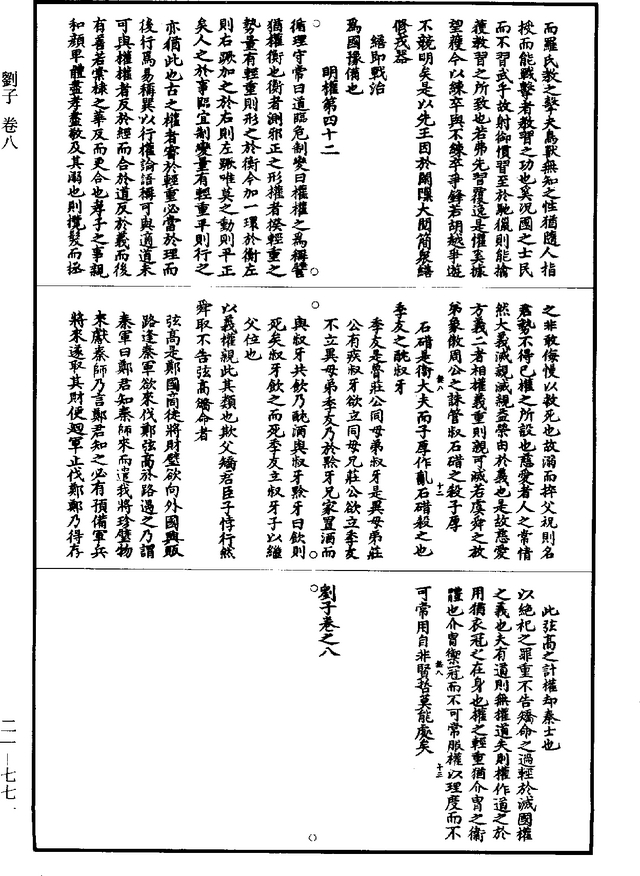 劉子 卷八
而羅氏教之擊夫鳥獸無知之性猶隨人指
授而能戰擊者教習之功也奚況國之士民
而不習武乎故射御慣習至於馳獵則能擒
獲教習之所致也若弗先習覆逸是懼奚據
望獲今以練卒與不練卒爭鋒若胡越爭遊
不競明矣是以先王因於閑隟大閱簡衆繕
脩戎器
繕即戰治
爲國豫備也
明權第四十二
循理守常曰道臨危制變曰權權之爲稱譬
猶權衡也衡者測邪正之形權者揆輕重之
勢量有輕重則形之於衡今加一環於衡左
則右蹶加之於右則左蹶唯莫之動則平正
矣人之於事臨宜制變量有輕重平則行之
亦猶此也古之權者審於輕重必當於理而
後行焉易稱巽以行權論語稱可與適道未
可與權權者反於經而合於道反於義而後
有善若棠棣之華反而更合也孝子之事親
和顏卑體盡孝盡敬及其溺也則攬髮而拯
之非敢侮慢以救死也故溺而捽父祝則名
君勢不得已權之所設也慈愛者人之常情
然大義滅親滅親益榮由於義也是故慈愛
方義二者相權義重則親可滅若虞舜之放
弟象傲周公之誅管叔石碏之殺子厚
石碏是衛大夫而子厚作亂石碏殺之也
季友之酖叔牙
季友是魯莊公同母弟叔牙是異母弟莊
公有疾叔牙欲立同母兄莊公欲立季友
不立異母弟季友乃於黔牙兄家置酒而
與叔牙共飲乃酖酒與叔牙黔牙曰飲則
死矣叔牙飲之而死季友立叔牙子以繼
父位也
以義權親此其類也欺父矯君臣子悖行然
舜取不告弦高矯命者
弦高是鄭國商徒將財璧欲向外國興販
路逢秦軍欲來伐鄭弦高於路遇之乃謂
秦軍曰鄭君知秦師來而遣我將珍璧物
來獻秦師乃言鄭君知之必有預備軍兵
將來遂取其財便迴軍止伐鄭鄭乃得存
此弦高之計權却秦士也
以絶祀之罪重不告矯命之過輕於滅國權
之義也夫有道則無權道失則權作道之於
用猶衣冠之在身也權之輕重猶介冑之衞
體也介冑禦寇而不可常服權以理度而不
可常用自非賢哲莫能處矣
劉子卷之八
二一—七七一